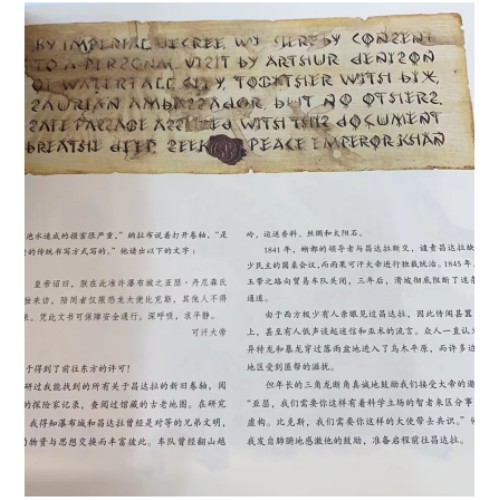 BY IMPERIAL DECREE, WE HEREBY CONSENT
TO A PERSONAL VISIT BY ARTHUR DENISON
OF WATERFALL CITY, TOGETHER WITH BIX,
SAURIAN AMBASSADOR BUT NO OTHERS.
SAFE PASSAGE ASSURED WITH THIS DOCUMENT
BREATHE DEEP. SEEK PEACE EMPEROR KHAN
泡水造成的损害很严重,”纳拉布说着打开卷轴,“是
的传统书写方式写的。”他读出以下的文字:
皇帝诏曰,朕在此准许瀑布城之亚瑟·丹尼森氏
独来访,陪同者仅限恐龙大使比克斯,其他人不得
来。凭此文书可保障安全通行。深呼吸,求平静。
可汗大帝
于得到了前往东方的许可!
研过我能找到的所有关于昌达拉的新旧卷轴,阅
的探险家记录,查阅过馆藏的古老地图。在研究
我得知瀑布城和昌达拉曾经是对等的兄弟文明,
物资与思想交换而丰富彼此。车队曾经翻山越
岭,运送香料、丝绸和太阳石。
1841年,蝌蚪的领导者与昌达拉断交,谴责昌达拉缺
少民主的圆桌会议,而雨果可汗大帝进行独裁统治。1845年
玉带之路向贸易车队关闭,三年后,滑坡彻底阻断了这条
通道。
由于西方极少有人亲眼见过昌达拉,因此传闻甚嚣
上,甚至有人低声谈起迷信和巫术的流言。众人一直认为
异特龙和暴龙穿过落雨盆地进入了乌木平原,而许多边
地区受到匪帮的滋扰。
但年长的三角龙断角真诚地鼓励我们接受大帝的邀
“亚瑟,我们需要你这样有着科学立场的智者来区分事
虚构。比克斯,我们需要你这样的大使带去共识。”
我发自肺腑地感激他的鼓励,准备启程前往昌达拉。